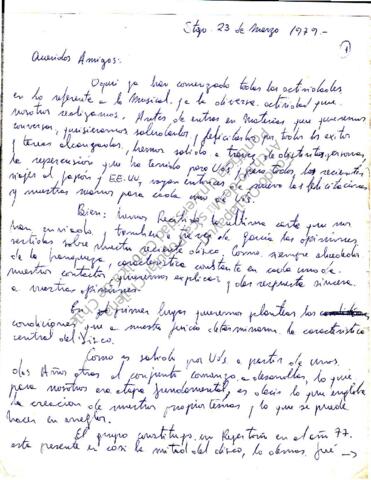 Stgo. 23 de Marzo 1979.-
1
Queridos Amigos:
Aquí ya han comenzado todas las actividades
en lo referente a lo Musical y a la diversa actividad que
nosotros realizamos. Antes de entrar en materias que queremos
conversar, quisieramos saludarlos y felicitarlos por todos los exitos
y tareas alcanzadas, hemos sabido a traves de distintas personas,
la repercusión que ha tenido para Uds. y para todos los recientes
viajes al Japón y EE.UU, vayan entonces de nuevo las felicitaciones
y nuestras manos para cada uno de Uds.
Bien: hemos recibido la ultima carta que nos
han enviado, y tambien a traves de García las opiniones
vertidas sobre nuestro reciente disco. Como siempre alrededor
de la franqueza, característica constante en cada uno de
nuestros contactos queremos explicar y dar respuesta sincera
a vuestras opiniones.
En primer lugar queremos plantear las
condiciones que a nuestro juicio determinaron la caracteristica
central del disco.
Como es sabido por Uds. a partir de unos
dos Años atras el conjunto comenzo a desarrollar lo que
para nosotros era etapa fundamental, es decir lo que engloba
la creacion de nuestros propios temas y lo que se puede
hacer en arreglos.
El grupo constituyó un Repertorio en el año 77.
esta presente en casi la mitad del disco, lo demas fué →